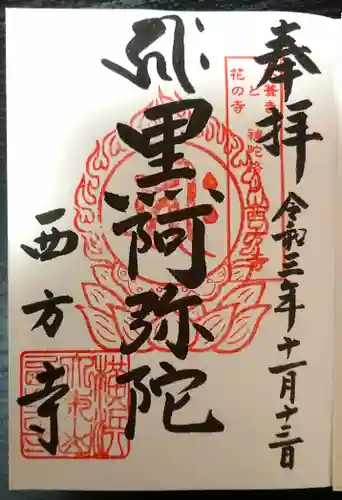 奉拝
令和三年十一月十三日
花の寺
里阿弥陀
西方寺
横浜